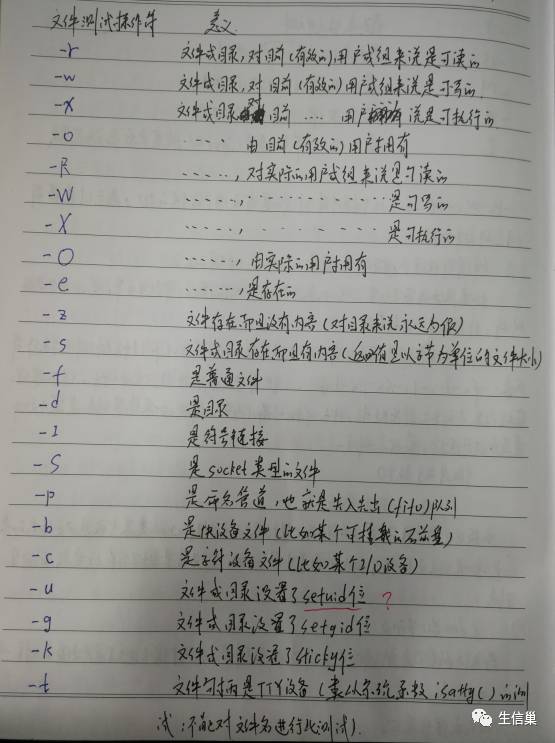 文件测试操作符 意义
-r 文件或目录,对目前(有效的)用户或组来说是可读的
-w 文件或目录,对目前(有效的)用户或组来说是可写的
-x 文件或目录对目前....用户 说是可执行的
-o ..... 由目前(有效的)用户拥有
-R ......,对实际的用户或组来说是可读的
-W ......,........是可写的
-X ......,........是可执行的
-O ......,由实际的用户拥有
-e ......,是存在的
-z 文件存在而且没有内容(对目录来说永远为假)
-s 文件或目录存在而且有内容(返回值是以字节为单位的文件大小)
-f 是普通文件
-d 是目录
-l 是符号链接
-S 是socket类型的文件
-p 是命名管道,也就是先入先出(fifo)队列
-b 是块设备文件(比如某个可挂载的磁盘)
-c 是字符设备文件(比如某个I/O设备)
-u 文件或目录设置了setuid位 ?
-g 文件或目录设置了setgid位
-k 文件或目录设置了sticky位
-t 文件句柄是TTY设备(类似系统函数isatty()的测
试;不能对文件名进行此测试).
生信巢